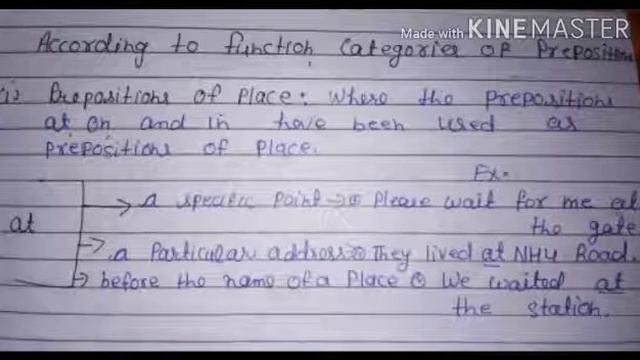 Made with KINEMASTER
According to function Categories of Preposition
(i) Prepositions of Place: Where the prepositions
at on and in have been used as
prepositions of Place.
Ex.
a specific Point → Please wait for me at
the gate
at
a Particular address They lived at NH4 Road.
before the name of a Place We waited at
the station.